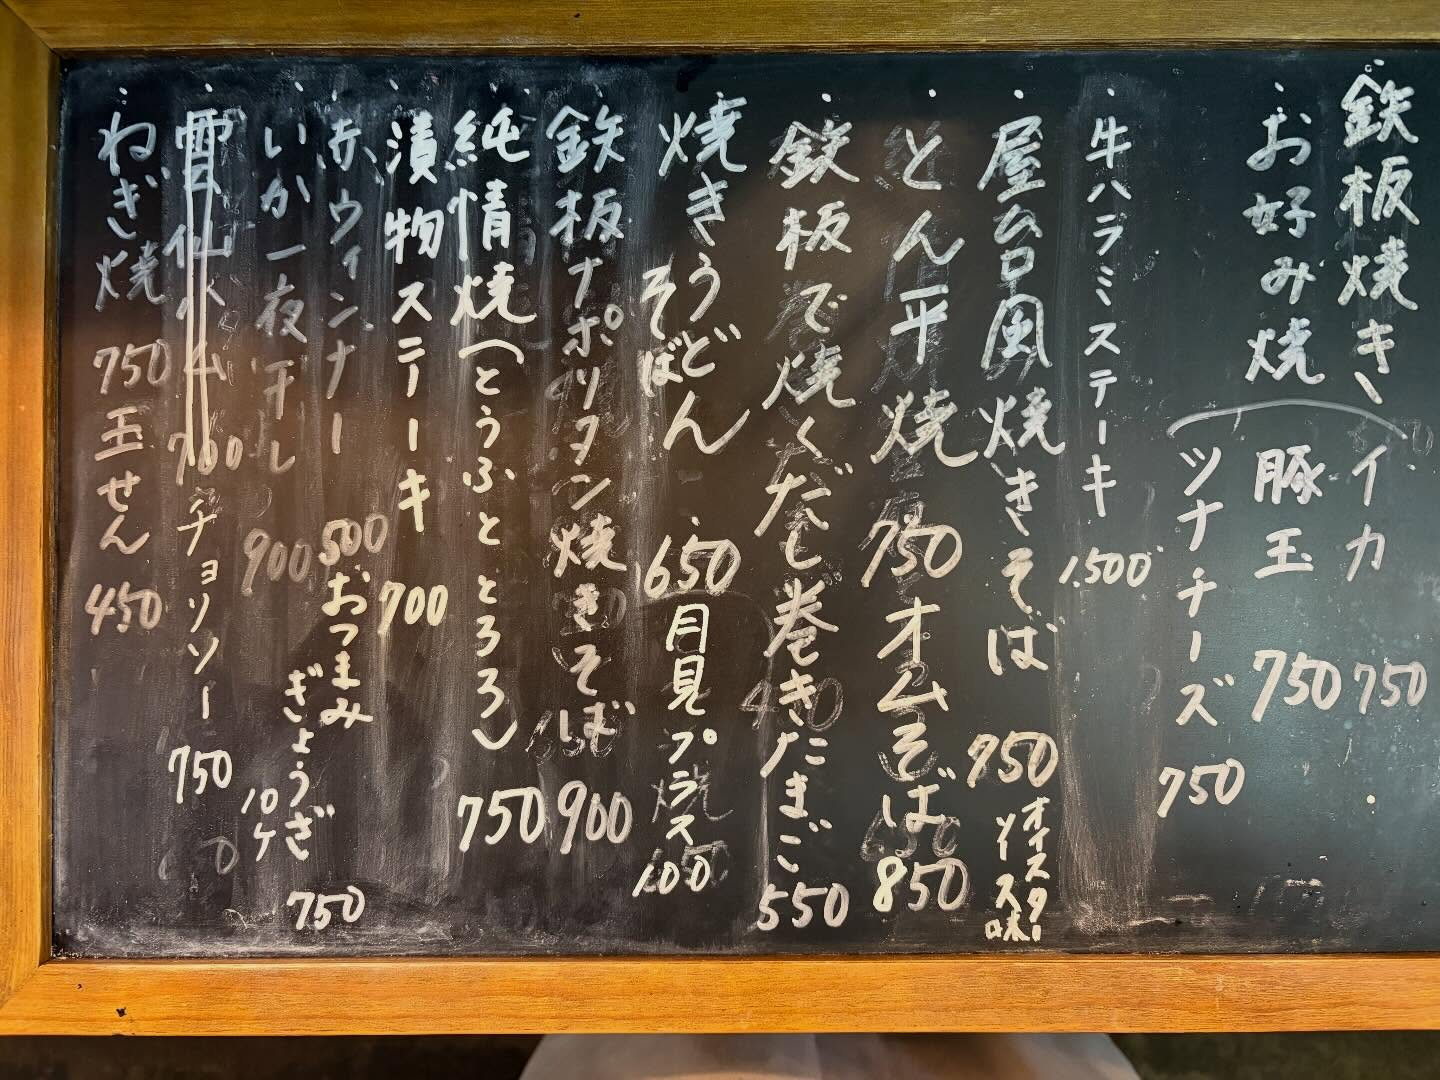 鉄板焼き
イカ 750
お好み焼
豚玉 750
ツナチーズ 750
牛ハラミステーキ 1,500
屋台風焼きそば 750
オイスターソース味
とん平焼 750
オムそば 850
鉄板で焼くだし巻きたまご 550
焼きうどん
そば 650
目見プラス 100
鉄板ナポリタン焼きそば 900
純情焼(とうふととろろ) 750
漬物ステーキ 700
赤ウィンナー 500
おつまみ
ぎょうざ
10ケ 750
いか一夜干し 900
700
チョリソー 750
ねぎ焼 750
玉せん 450